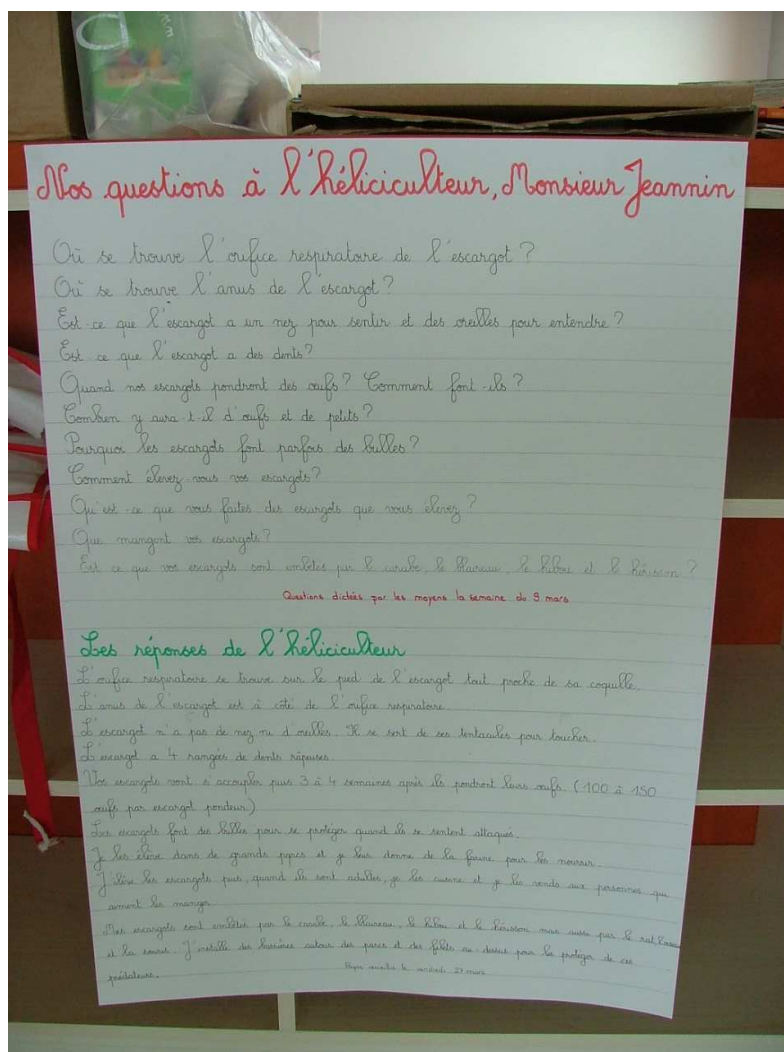 Nos questions à l'héliciculteur, Monsieur Jeannin
Où se trouve l'orifice respiratoire de l'escargot ?
Où se trouve l'anus de l'escargot ?
Est-ce que l'escargot a un nez pour sentir et des oreilles pour entendre ?
Est-ce que l'escargot a des dents ?
Quand nos escargots pondront des œufs ? Comment font-ils ?
Combien y aura-t-il d'œufs et de petits ?
Pourquoi les escargots font parfois des bulles ?
Comment élevez-vous vos escargots ?
Qu'est-ce que vous faites des escargots que vous élevez ?
Que mangent vos escargots ?
Est ce que vos escargots sont embêtés par le carabe, le blaireau, le hibou et le hérisson ?
Questions dictées par les moyens la semaine du 9 mars
Les réponses de l'héliciculteur
L'orifice respiratoire se trouve sur le pied de l'escargot tout proche de sa coquille.
L'anus de l'escargot est à côté de l'orifice respiratoire.
L'escargot n'a pas de nez ni d'oreilles. Il se sert de ses tentacules pour toucher.
L'escargot a 4 rangées de dents râpeuses.
Vos escargots vont s'accoupler puis 3 à 4 semaines après ils pondront leurs œufs. (100 à 150
œufs par escargot pondeur)
Les escargots font des bulles pour se protéger quand ils se sentent attaqués.
Je les élève dans de grands parcs et je leur donne de la farine pour les nourrir.
J'élève les escargots puis, quand ils sont adultes, je les cuisine et je les vends aux personnes qui
aiment les manger.
Mes escargots sont embêtés par le carabe, le blaireau, le hibou et le hérisson mais aussi par le rat,
et la souris. J'installe des barrières autour des parcs et des filets au-dessus pour les protéger de ces
prédateurs.
vendredi 27 mars